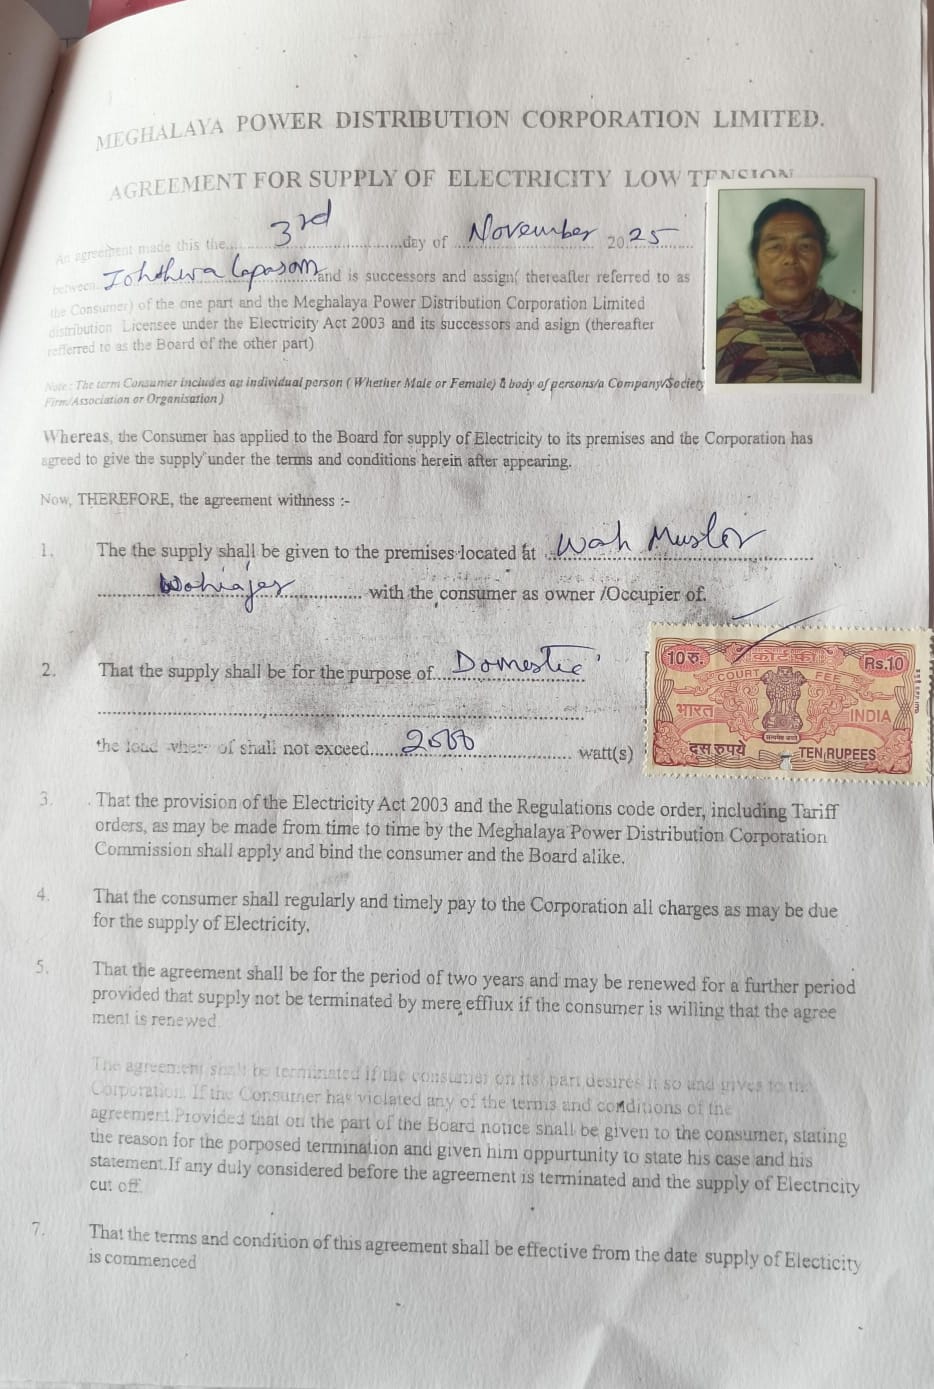 MEGHALAYA POWER DISTRIBUTION CORPORATION LIMITED.
AGREEMENT FOR SUPPLY OF ELECTRICITY LOW TENSION
An agreement made this the 3rd day of November 2025
between and is successors and assign( thereafter referred to as
the Consumer) of the one part and the Meghalaya Power Distribution Corporation Limited
distribution Licensee under the Electricity Act 2003 and its successors and asign (thereafter
refferred to as the Board of the other part)
Note : The term Consumer includes an individual person ( Whether Male or Female) & body of persons/a Company/Society
Firm/Association or Organisation )
Whereas, the Consumer has applied to the Board for supply of Electricity to its premises and the Corporation has
agreed to give the supply under the terms and conditions herein after appearing.
Now, THEREFORE, the agreement withness :-
1. The the supply shall be given to the premises located at Wah
with the consumer as owner /Occupier of.
2. That the supply shall be for the purpose of Domestic
10 रु. कोर्ट फी Rs.10
COURT FEE
भारत INDIA
सत्यमेव जयते
दस रुपये TEN RUPEES
the load wher of shall not exceed watt(s)
3. That the provision of the Electricity Act 2003 and the Regulations code order, including Tariff
orders, as may be made from time to time by the Meghalaya Power Distribution Corporation
Commission shall apply and bind the consumer and the Board alike.
4. That the consumer shall regularly and timely pay to the Corporation all charges as may be due
for the supply of Electricity,
5. That the agreement shall be for the period of two years and may be renewed for a further period
provided that supply not be terminated by mere efflux if the consumer is willing that the agree
ment is renewed.
The agreement shall be terminated if the consumer on its part desires it so and gives to the
Corporation. If the Consumer has violated any of the terms and conditions of the
agreement.Provided that on the part of the Board notice shall be given to the consumer, stating
the reason for the porposed termination and given him oppurtunity to state his case and his
statement.If any duly considered before the agreement is terminated and the supply of Electricity
cut off.
7. That the terms and condition of this agreement shall be effective from the date supply of Electicity
is commenced